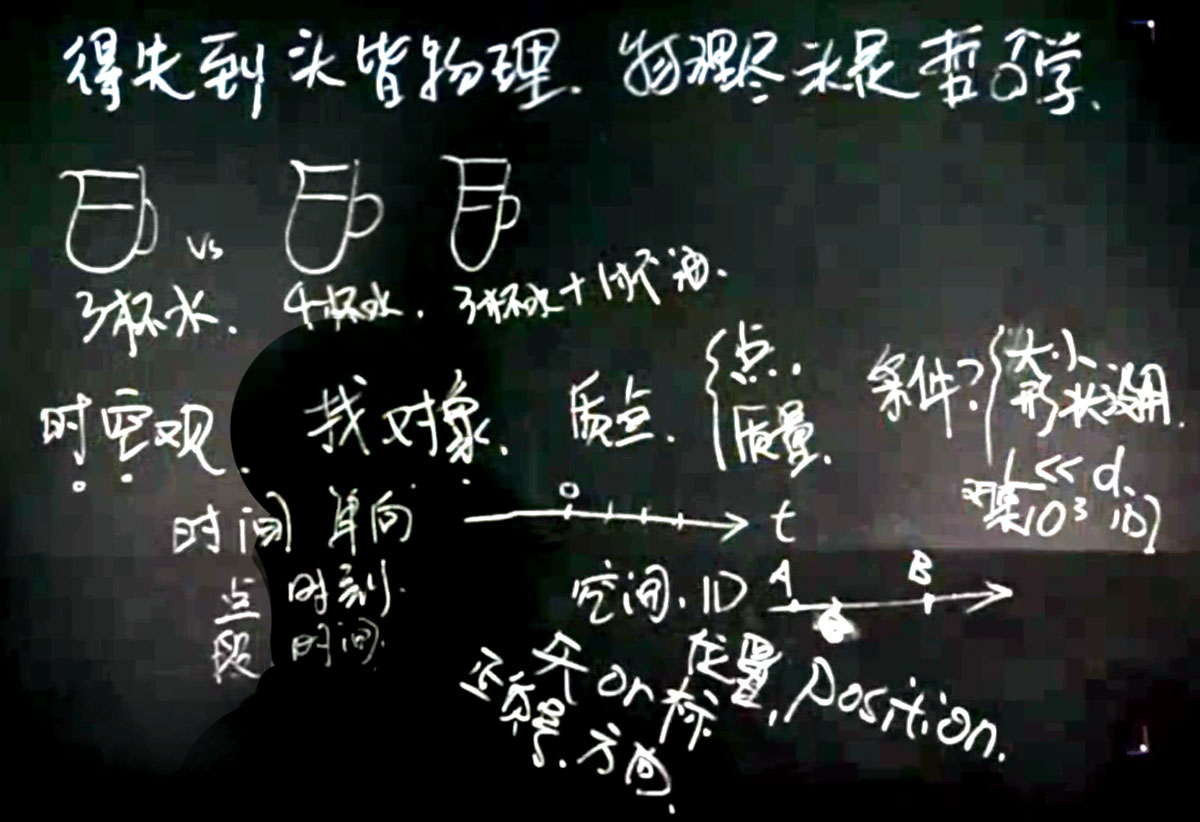 得失到头皆物理. 物理尽头是哲学.
vs
3杯水. 4杯水. 3杯水+1杯油.
时空观. 找对象. 质点. {点. 质量. 条件? {大小 形状没用.
L << d.
对象 10³
时间 单向 0 t
点 时刻.
段 时间.
空间. 1D A B
矢 or 标 位置, position.
正负号. 方向.